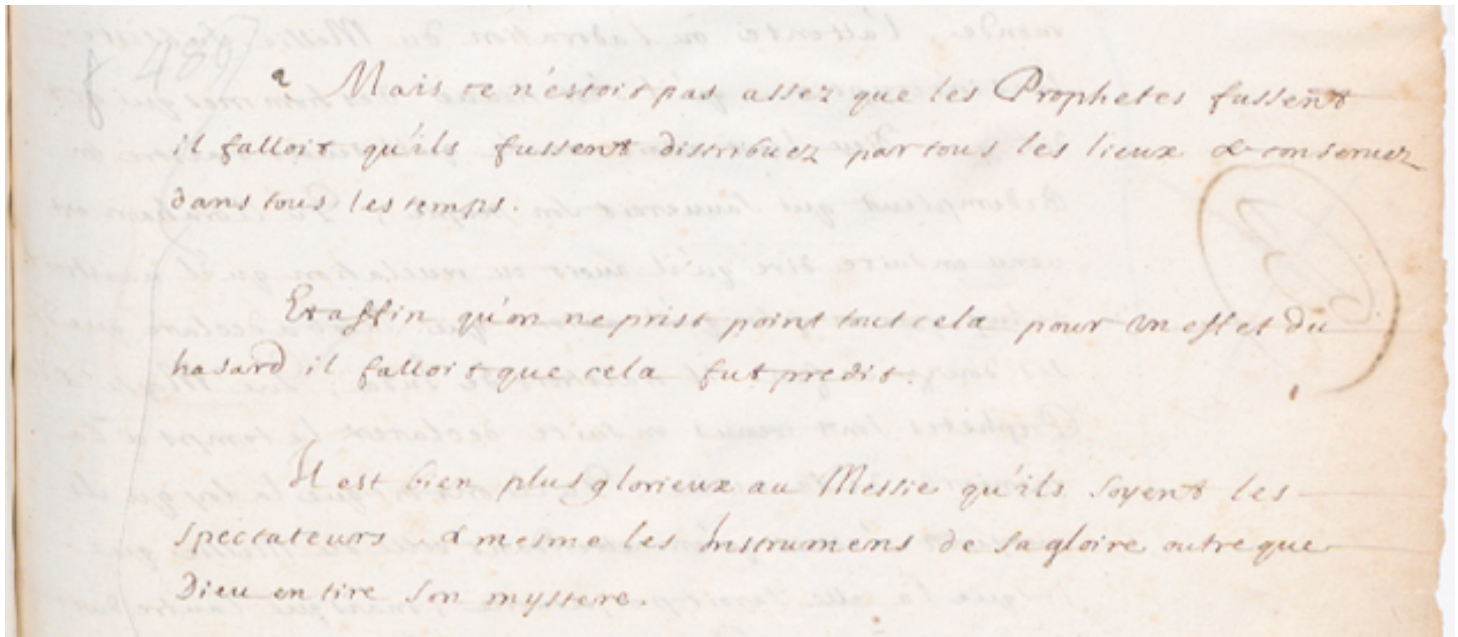 f 489
a Mais ce n'estoit pas assez que les Prophetes fussent
il falloit qu'ils fussent distribuez par tous les lieux & conseruez
dans tous les temps.
Et affin qu'on ne prist point tout cela pour vn effet du
hasard il falloit que cela fut predit.
Il est bien plus glorieux au Messie qu'ils soyent les
spectateurs & mesme les Instrumens de sa gloire outre que
Dieu en tire son mystere.